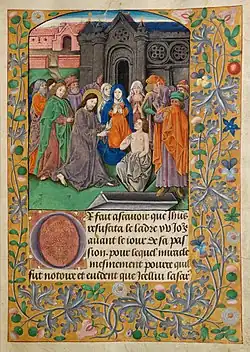 Or fait ascauoir que Ihus
resuscita le ladre xv Jo's
auant le iour de sa pas
sion. pour lequel miracle
mesmement pource quil
fut notoire et euident que